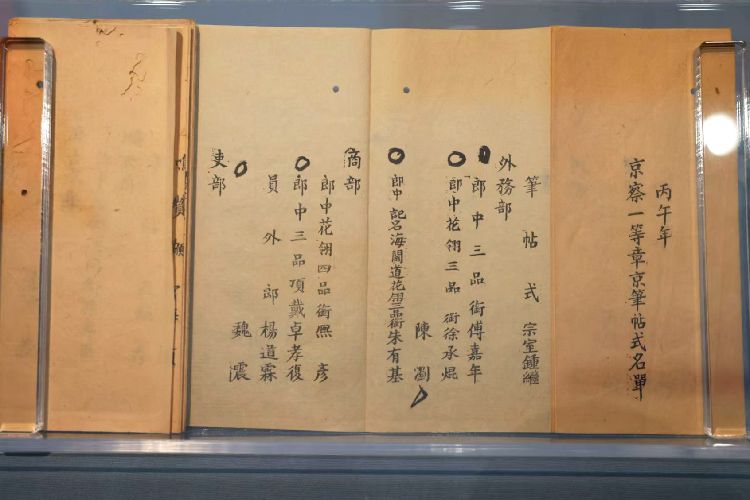 丙午年
京察一等章京筆帖式名單
筆帖式 宗室鍾繼
外務部
郎中三品銜傅嘉年
郎中花翎三品銜徐承焜
陳瀏
郎中 記名海關道花翎二品銜朱有基
商部
郎中花翎四品銜熙彥
郎中三品頂戴卓孝復
員外郎楊道霖
魏震
吏部